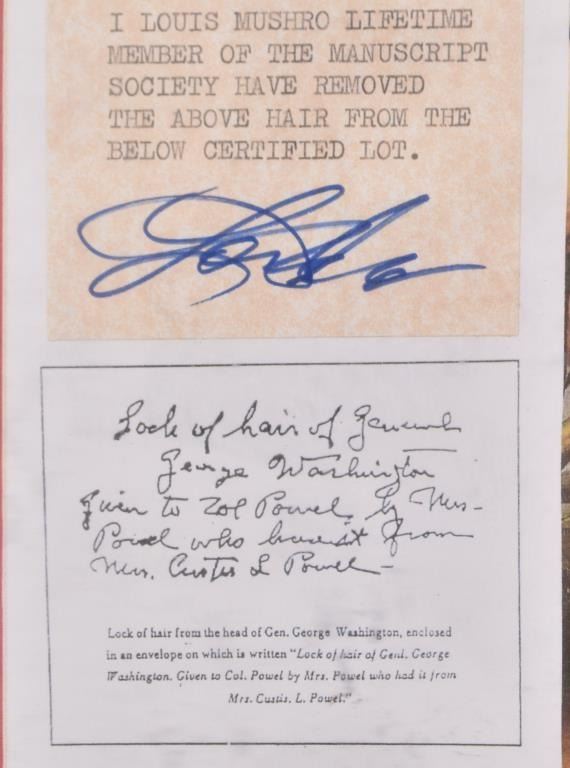 I LOUIS MUSHRO LIFETIME
MEMBER OF THE MANUSCRIPT
SOCIETY HAVE REMOVED
THE ABOVE HAIR FROM THE
BELOW CERTIFIED LOT.
Lock of hair of General
George Washington
given to Col Powel by Mrs-
Powel who had it from
Mrs. Custis L Powel-
Lock of hair from the head of Gen. George Washington, enclosed
in an envelope on which is written "Lock of hair of Genl. George
Washington. Given to Col. Powel by Mrs. Powel who had it from
Mrs. Custis. L. Powel."